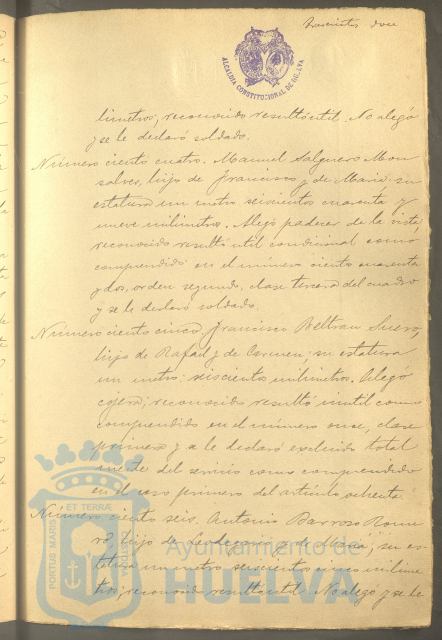 Trescientos doce
ALCALDIA CONSTITUCIONAL DE HUELVA
límetros; reconocido resultó útil. No alegó
y se le declaró soldado.
Número ciento cuatro. Manuel Salguero Mon
salves, hijo de Francisco y de Maria: su
estatura un metro seiscientos cuarenta y
nueve milimetros. Alegó padecer de la vista,
reconocido resultó util condicional como
comprendido en el número ciento cuarenta
y dos, orden segundo, clase tercera del cuadro
y se le declaró soldado.
Número ciento cinco. Francisco Beltran Suero,
hijo de Rafael y de Carmen; su estatura
un metro seiscientos milimetros. Alegó
cojera; reconocido resultó inutil como
comprendido en el número once, clase
primera y se le declaró excluido total
mente del servicio como comprendido
en el caso primero del artículo ochenta.
Número ciento seis. Antonio Barroso Rome
ro, hijo de Leodegario y de Maria; su es
tatura un metro seiscientos cinco milime
tros; reconocido resultó util. No alegó y se le
PORTUS MARIS ET TERRÆ CUSTODIA
Ayuntamiento de
HUELVA